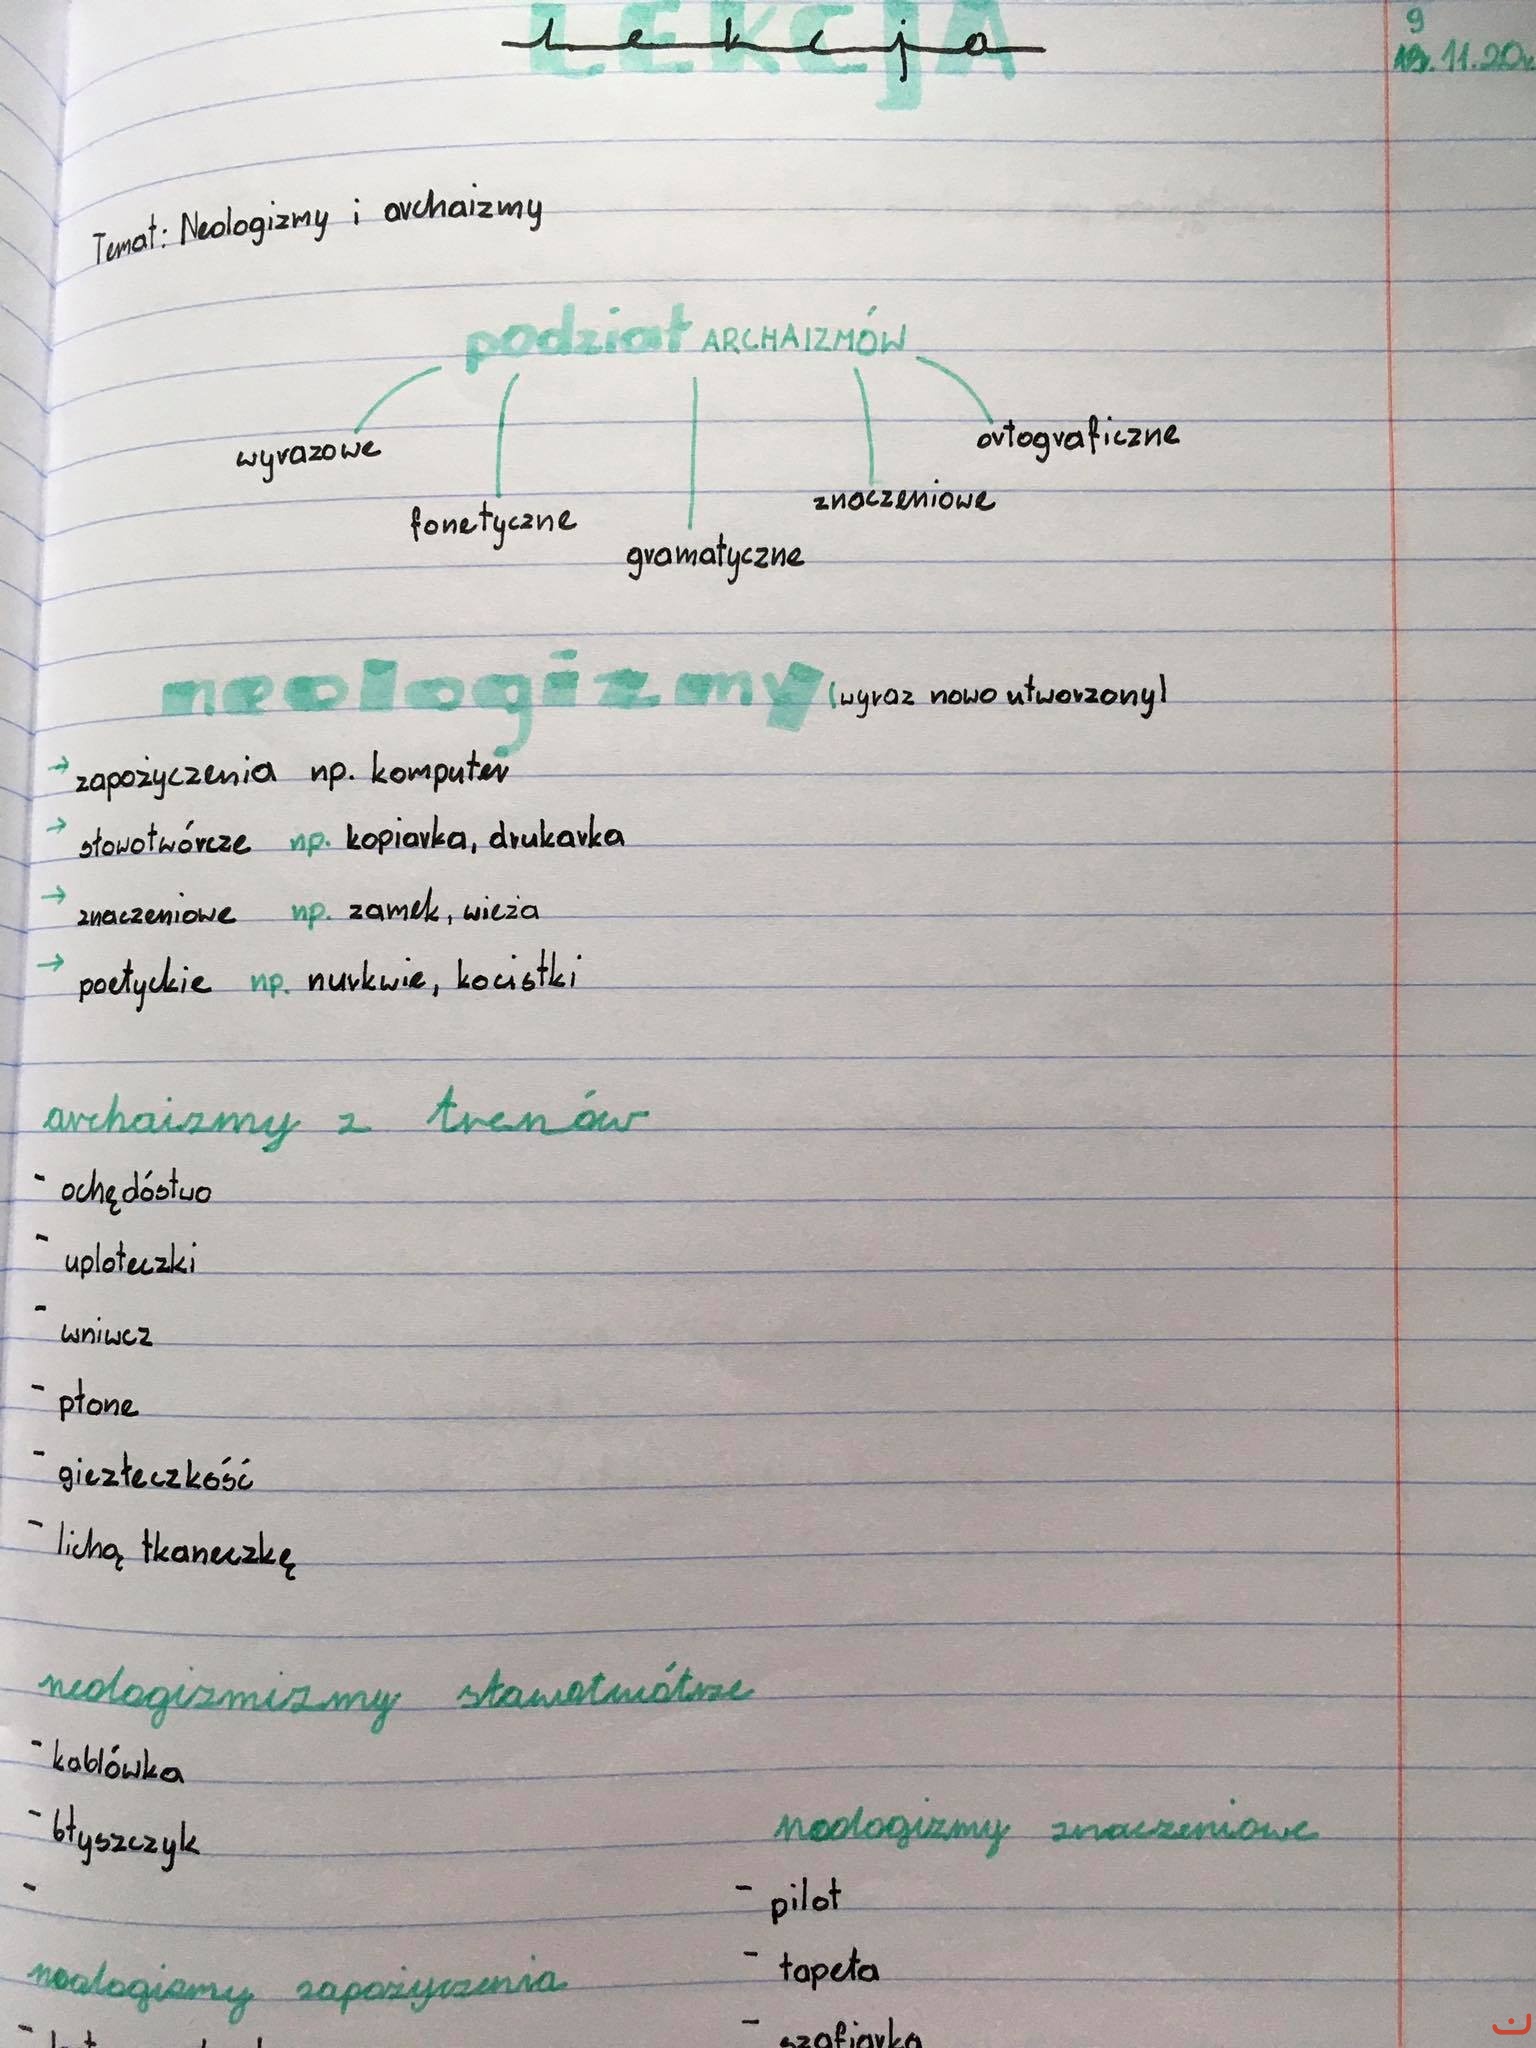 LEKCJA
lekcja
9
11.20r.
Temat: Neologizmy i archaizmy
podział ARCHAIZMÓW
wyrazowe
fonetyczne
gramatyczne
znaczeniowe
ortograficzne
neologizmy (wyraz nowo utworzony)
→ zapożyczenia np. komputer
→ słowotwórcze np. kopiarka, drukarka
→ znaczeniowe np. zamek, wieża
→ poetyckie np. nurkwie, kocistki
archaizmy z trenów
- ochędóstwo
- uploteczki
- wniwcz
- płone
- giezłeczkość
- lichą tkaneczkę
neologizmizmy
- kablówka
- błyszczyk
-
neologizmy znaczeniowe
- pilot
- tapeta
- szafiarka
neologizmy zapożyczenia